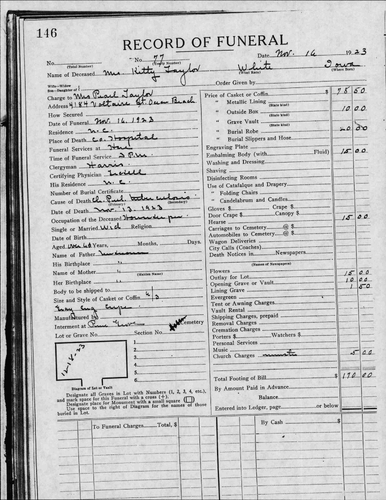 146
RECORD OF FUNERAL
No. 87 Date Nov. 16 1923
(Total Number) (Yearly Number)
Name of Deceased Mrs Kitty Taylor White Iowa
(What Race) (Where Born)
Wife—Widow
Son—Daughter of
Order Given by
Charge to Mrs Pearl Taylor
Address 4184 Voltaire St. Ocean Beach
How Secured
Date of Funeral Nov. 16, 1923
Residence N.C.
Place of Death Co. Hospital
Funeral Services at Here
Time of Funeral Service 2 P.M.
Clergyman Harris
Certifying Physician
His Residence N.C.
Number of Burial Certificate
Cause of Death Ch. Pul. tuberculosis
Date of Death Nov. 13, 1923
Occupation of the Deceased
Single or Married Wid Religion
Date of Birth
Aged 60 Years, Months, Days.
Name of Father Unknown
His Birthplace "
Name of Mother "
(Maiden Name)
Her Birthplace "
Body to be shipped to
Size and Style of Casket or Coffin 6/3
Manufactured by
Interment at Cemetery
Lot or Grave No. Section No.
12-18-23
1
2
3
4
5
6
Diagram of Lot or Vault
Designate all Graves in Lot with Numbers (1, 2, 3, 4, etc.),
and mark space for this Funeral with a cross (+).
Designate place for Monument with a small square
Use space to right of Diagram for the names of those
buried in Lot.
Price of Casket or Coffin $ 75 50
" Metallic Lining
(State kind)
" Outside Box 10 00
(State kind)
" Grave Vault
(State kind)
" Burial Robe 20 00
(State kind)
" Burial Slippers and Hose
Engraving Plate
Embalming Body (with Fluid) 15 00
Washing and Dressing
Shaving
Disinfecting Rooms
Use of Catafalque and Drapery
" Folding Chairs
" Candelabrum and Candles
Gloves $ Crape $
Door Crape $ Canopy $
Hearse 15 00
Carriages to Cemetery @ $
Automobiles to Cemetery @ $
Wagon Deliveries
City Calls (Coaches)
Death Notices in Newspapers
(Names of Newspapers)
Flowers 15 00
Outlay for Lot 10 00
Opening Grave or Vault 1 50
Lining Grave
Evergreens
Tent or Awning Charges
Vault Rental
Shipping Charges, prepaid
Removal Charges
Cremation Charges
Porters $ Watchers $
Personal Services
Music
Church Charges minister 5 00
Total Footing of Bill $ 170 00
By Amount Paid in Advance
Balance
Entered into Ledger, page or below $
To Funeral Charges, Total $
By Cash $